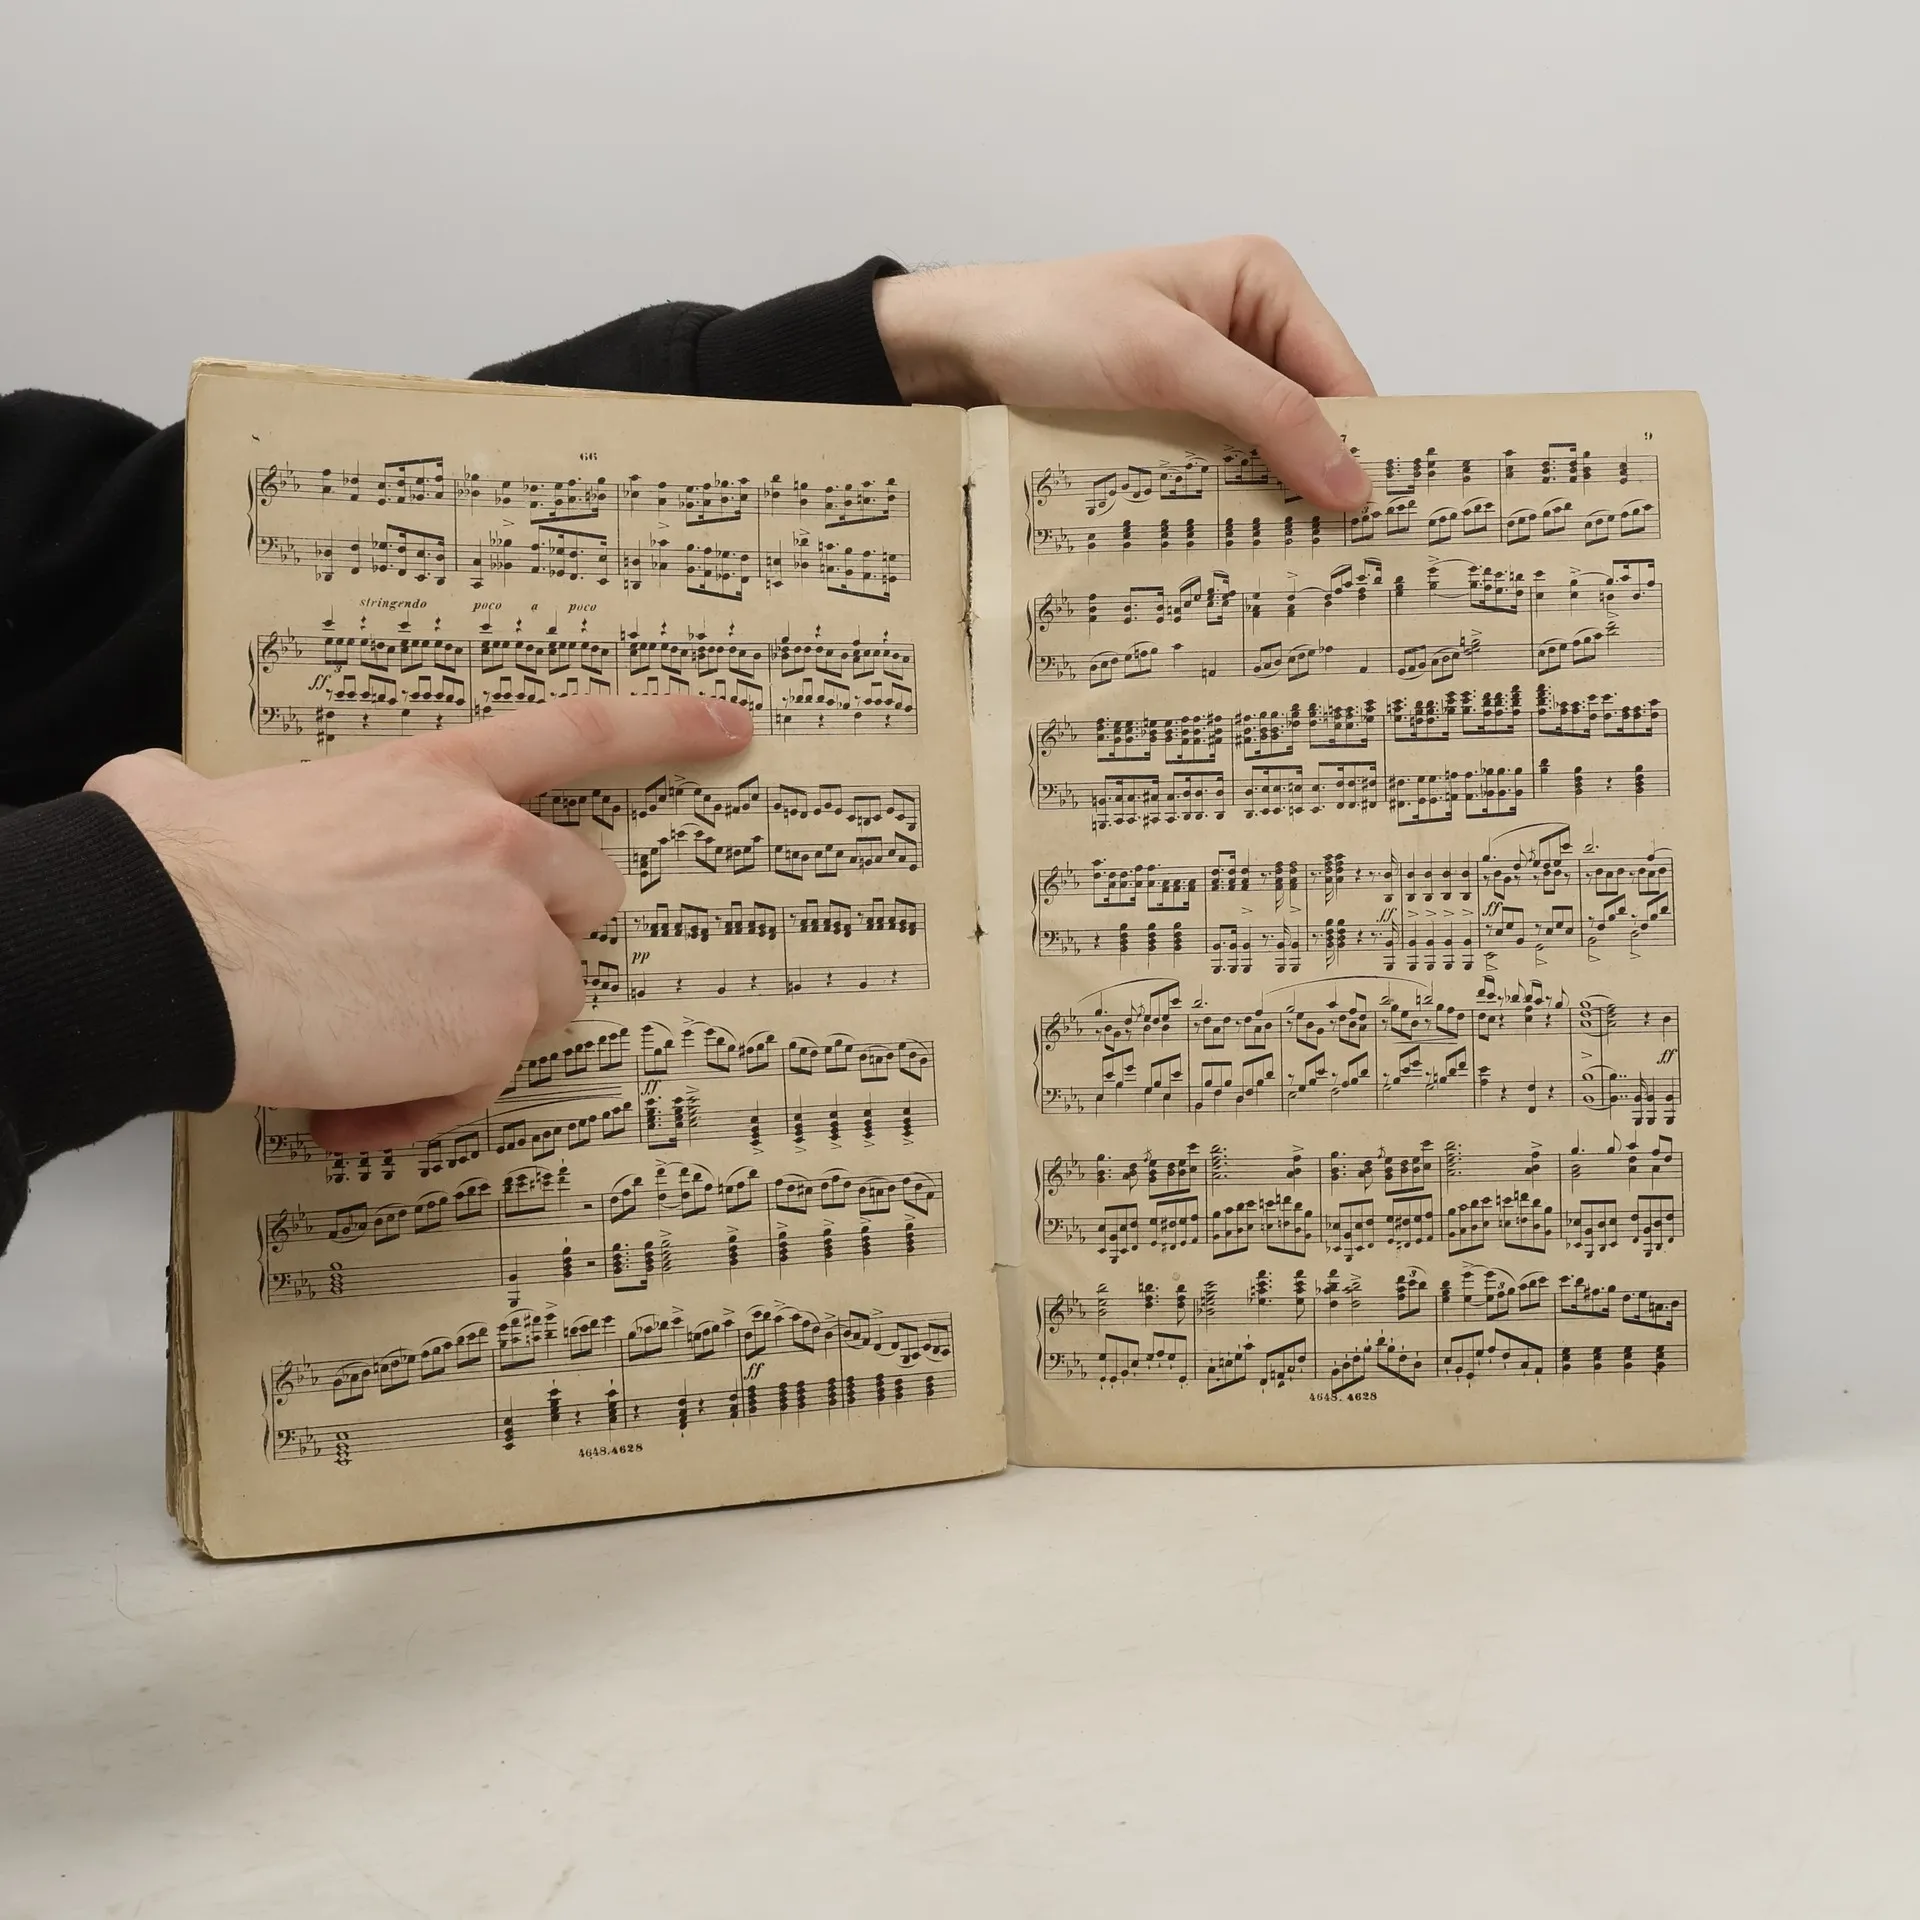 66
stringendo poco a poco
ff
pp
ff
ff
4648.4628
7 9
ff ff
ff
4648. 4628